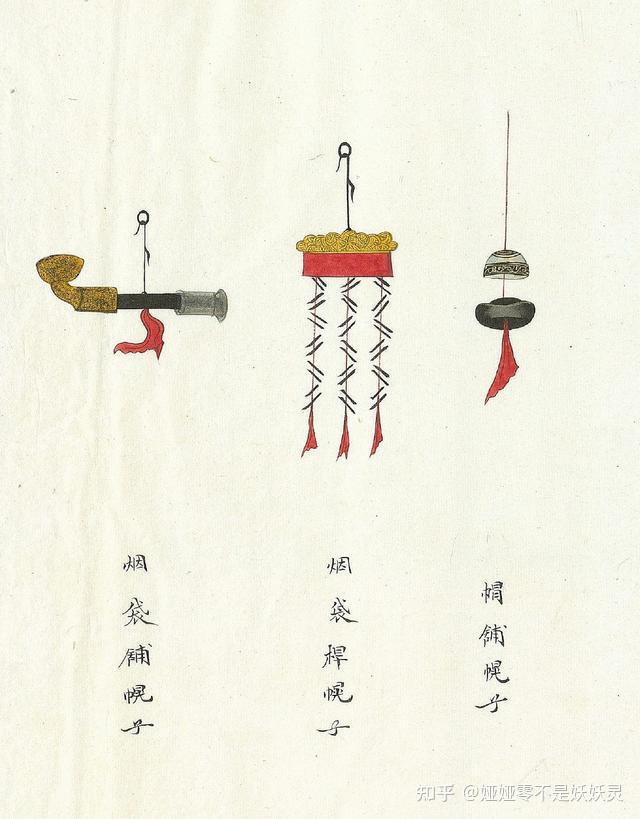 帽舖幌子
烟袋桿幌子
烟袋舖幌子
知乎 @娅娅零不是妖妖灵